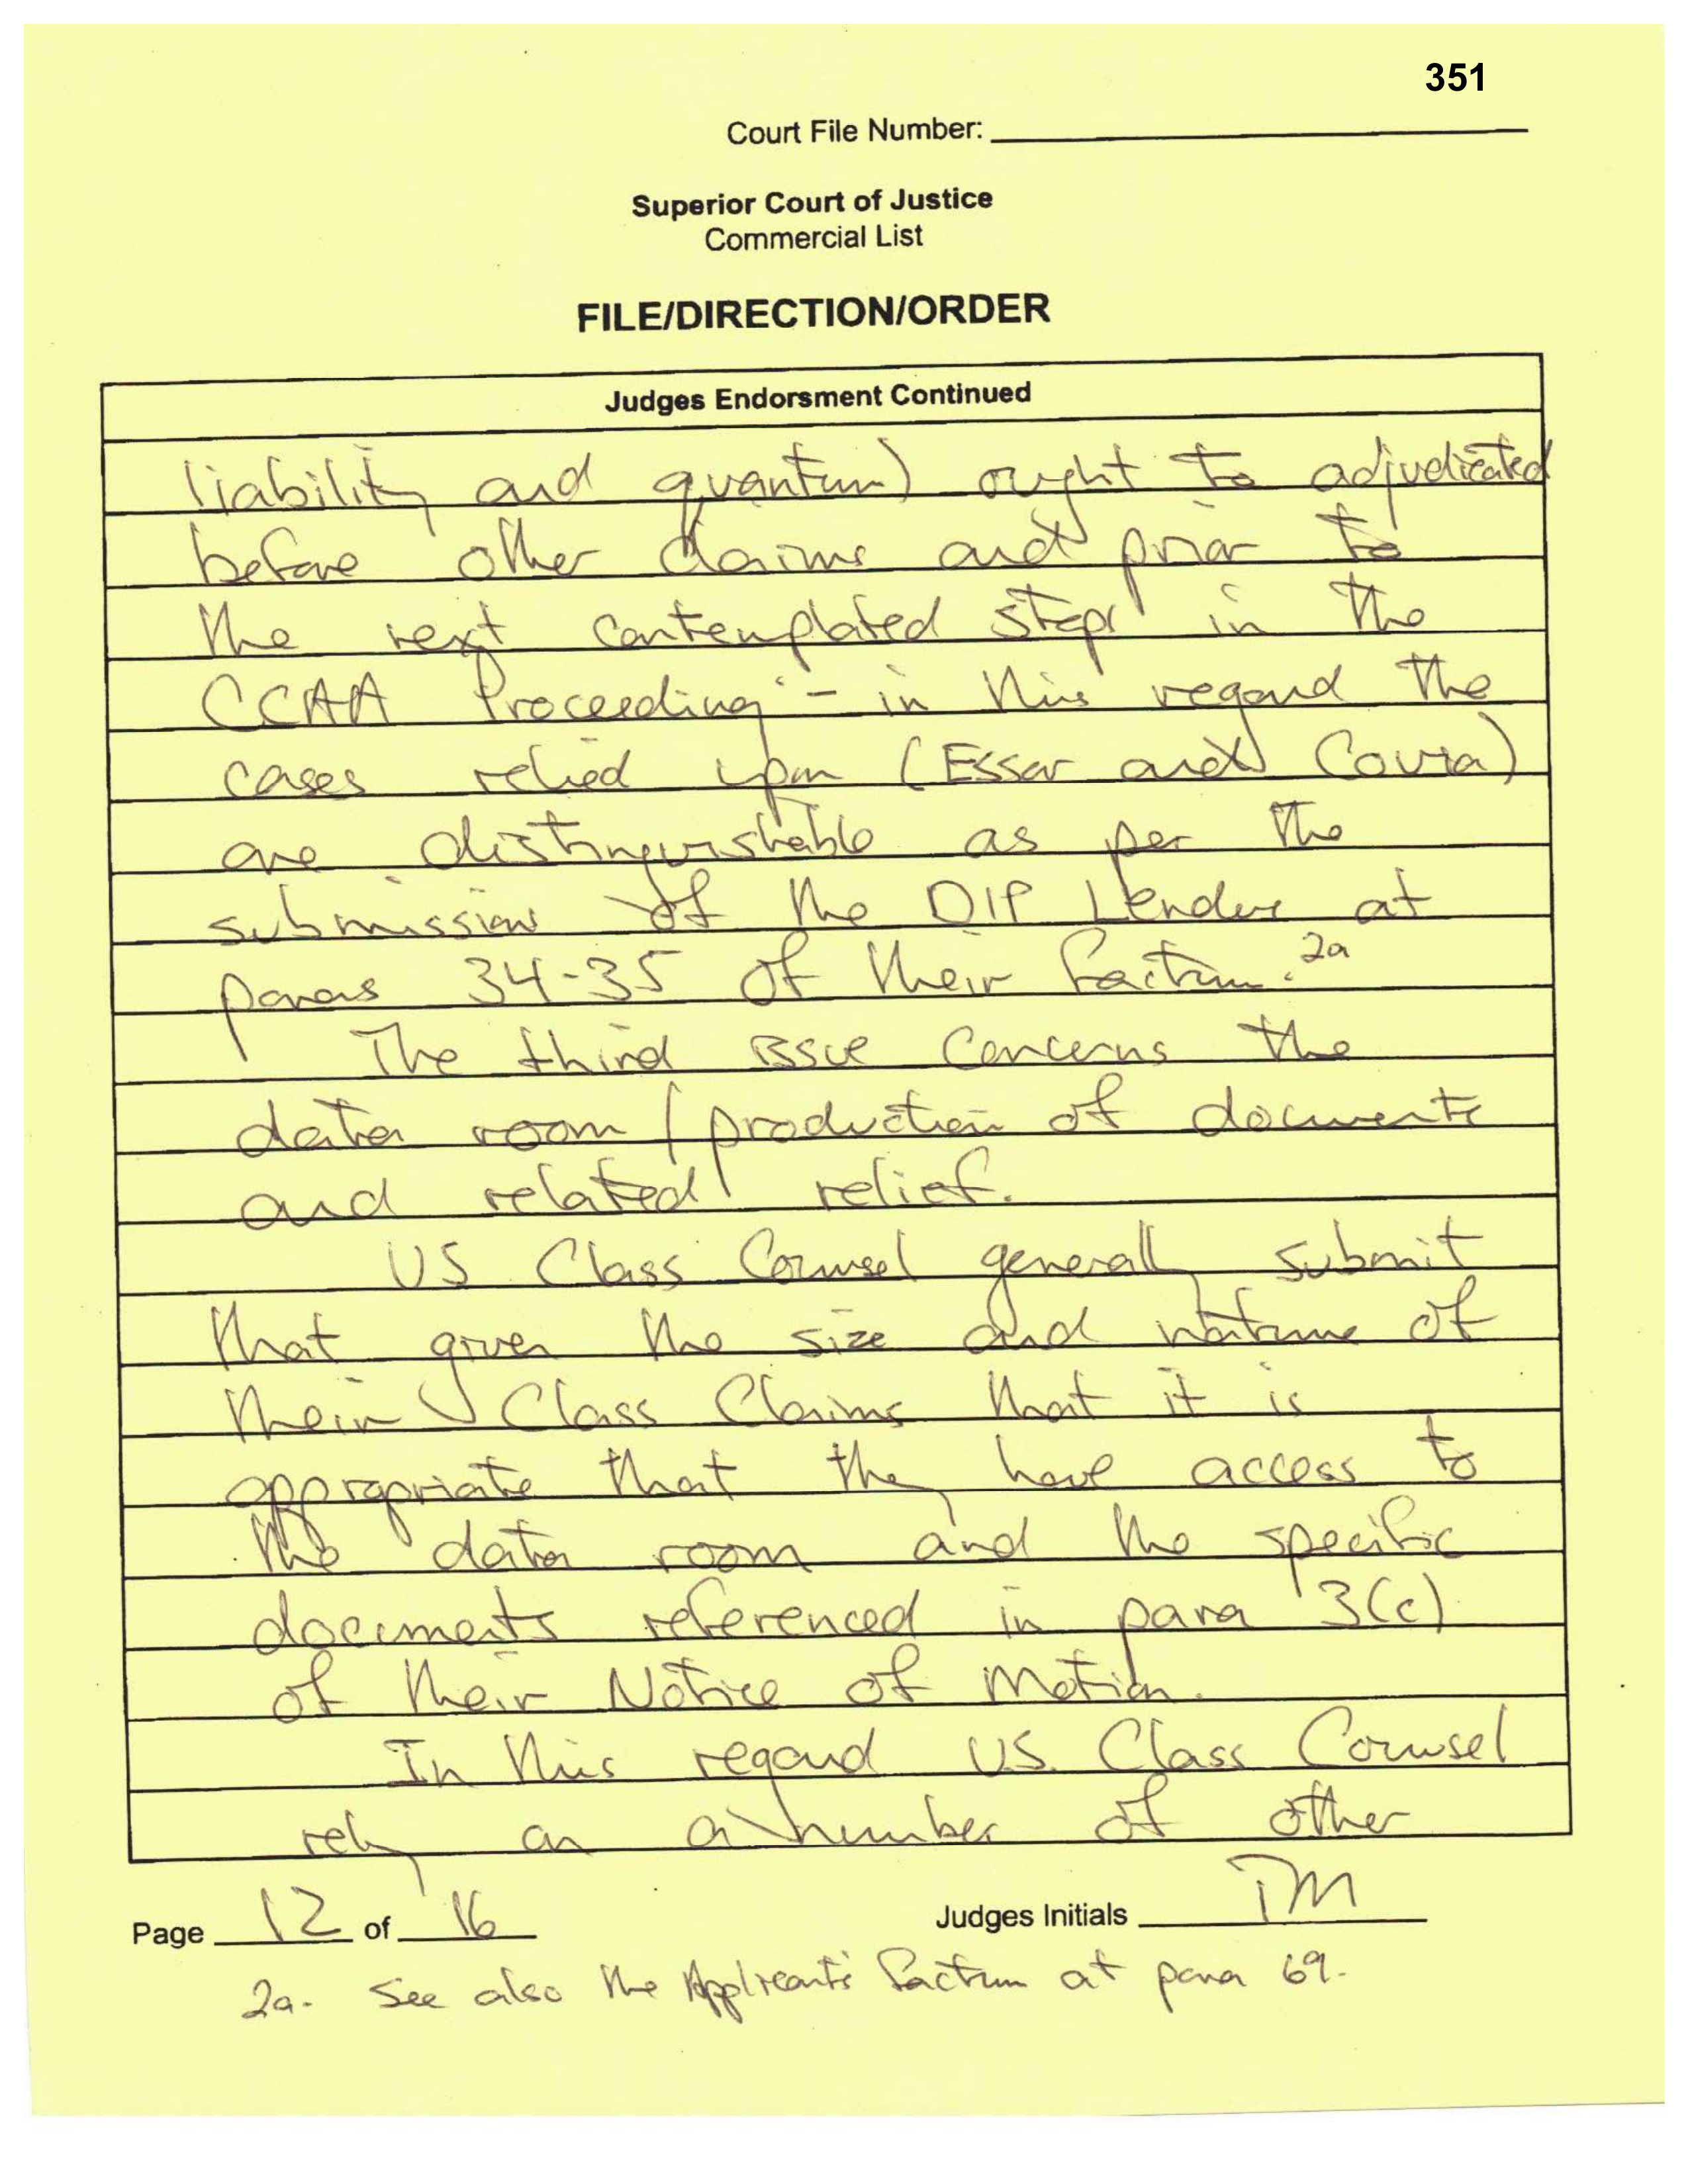 351
Court File Number:
Superior Court of Justice
Commercial List
FILE/DIRECTION/ORDER
Judges Endorsment Continued
liability and quantum) ought to adjudicated
before other claims and prior to
the next contemplated steps in the
CCAA Proceeding - in this regard the
cases relied upon (Essar and Covia)
are distinguishable as per the
submission of the DIP Lender at
paras 34-35 of their factum. 2a
The third issue concerns the
data room / production of documents
and related relief.
US Class Counsel generally submit
that given the size and nature of
their Class Claims that it is
appropriate that they have access to
the data room and the specific
documents referenced in para 3(c)
of their Notice of Motion.
In this regard US Class Counsel
rely on a number of other
Page 12 of 16
Judges Initials TM
2a. See also the Applicants' factum at para 69.